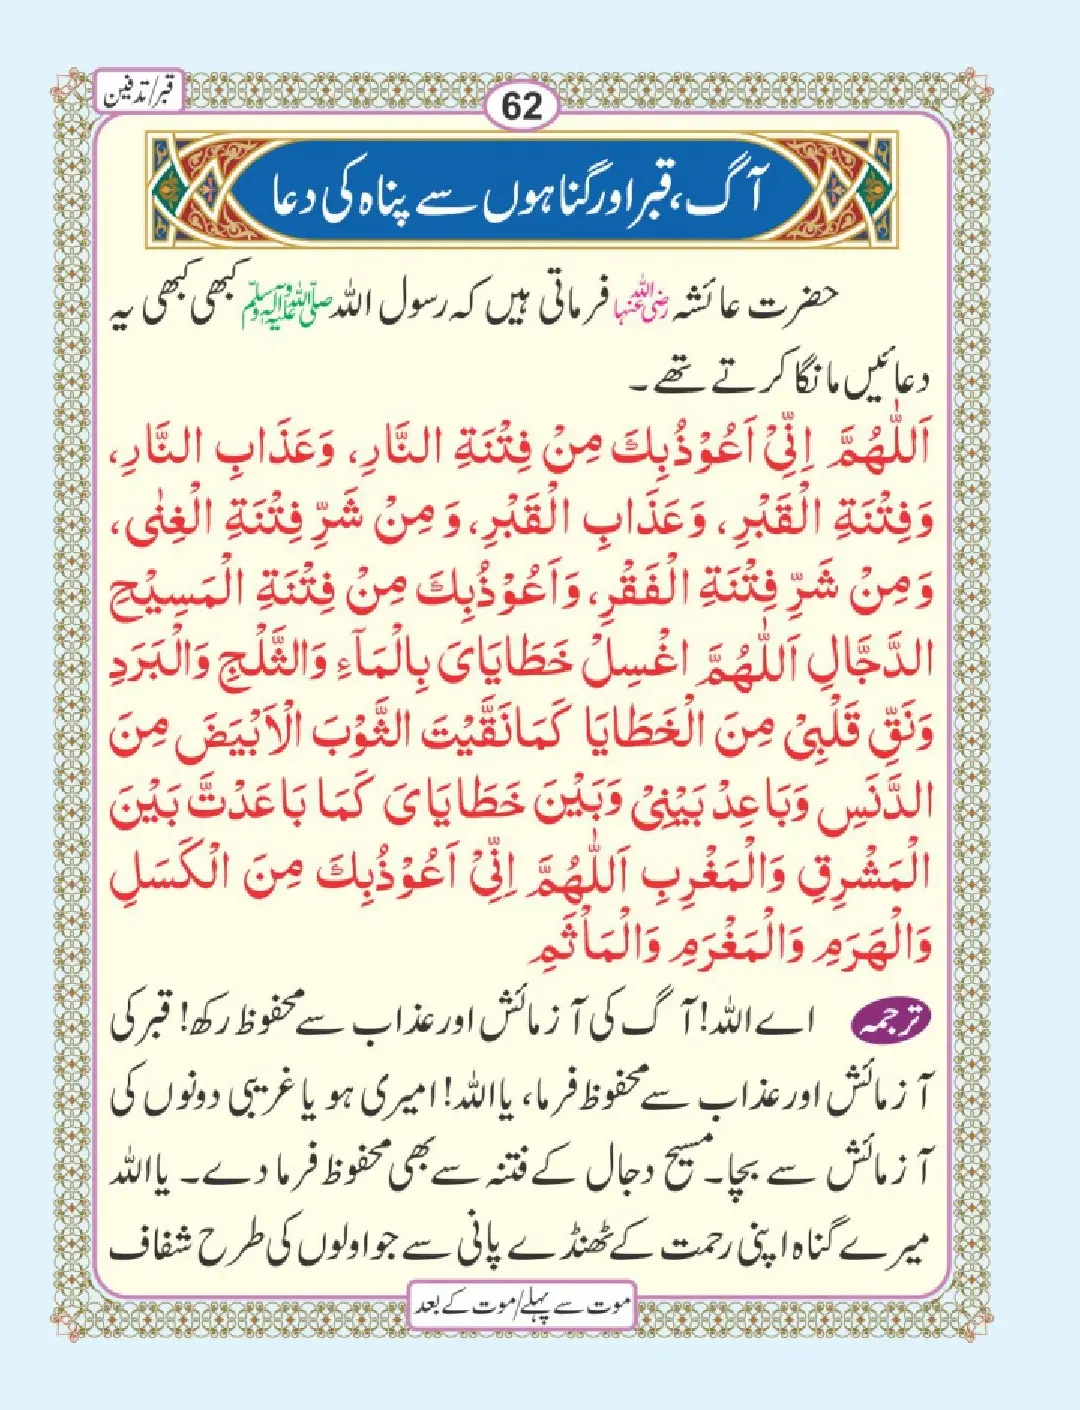 قبر/تدفین
62
آگ، قبر اور گناہوں سے پناہ کی دعا
حضرت عائشہ رضی اللہ عنہا فرماتی ہیں کہ رسول اللہ صلی اللہ علیہ وآلہ وسلم کبھی کبھی یہ
دعائیں مانگا کرتے تھے۔
اَللّٰهُمَّ اِنِّيْ اَعُوْذُبِكَ مِنْ فِتْنَةِ النَّارِ، وَعَذَابِ النَّارِ،
وَفِتْنَةِ الْقَبْرِ، وَعَذَابِ الْقَبْرِ، وَمِنْ شَرِّ فِتْنَةِ الْغِنٰى،
وَمِنْ شَرِّ فِتْنَةِ الْفَقْرِ، وَاَعُوْذُبِكَ مِنْ فِتْنَةِ الْمَسِيْحِ
الدَّجَّالِ اَللّٰهُمَّ اغْسِلْ خَطَايَاىَ بِالْمَآءِ وَالثَّلْجِ وَالْبَرَدِ
وَنَقِّ قَلْبِىْ مِنَ الْخَطَايَا كَمَا نَقَّيْتَ الثَّوْبَ الْاَبْيَضَ مِنَ
الدَّنَسِ وَبَاعِدْ بَيْنِىْ وَبَيْنَ خَطَايَاىَ كَمَا بَاعَدْتَّ بَيْنَ
الْمَشْرِقِ وَالْمَغْرِبِ اَللّٰهُمَّ اِنِّيْ اَعُوْذُبِكَ مِنَ الْكَسَلِ
وَالْهَرَمِ وَالْمَغْرَمِ وَالْمَاْثَمِ
ترجمہ اے اللہ! آگ کی آزمائش اور عذاب سے محفوظ رکھ! قبر کی
آزمائش اور عذاب سے محفوظ فرما، یا اللہ! امیری ہو یا غریبی دونوں کی
آزمائش سے بچا۔ مسیح دجال کے فتنہ سے بھی محفوظ فرما دے۔ یا اللہ
میرے گناہ اپنی رحمت کے ٹھنڈے پانی سے جو اولوں کی طرح شفاف
موت سے پہلے/موت کے بعد